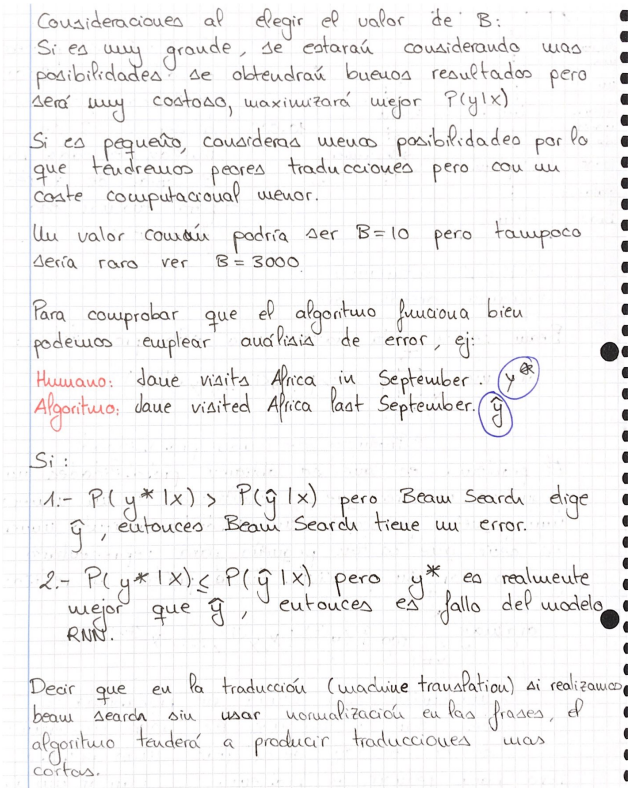 Consideraciones al elegir el valor de B:
Si es muy grande, se estarán considerando mas
posibilidades se obtendrán buenos resultados pero
será muy costoso, maximizará mejor P(y|x)
Si es pequeño, consideras menos posibilidades por lo
que tendremos peores traducciones pero con un
coste computacional menor.
Un valor común podría ser B=10 pero tampoco
sería raro ver B=3000
Para comprobar que el algoritmo funciona bien
podemos emplear análisis de error, ej:
Humano: Jane visits Africa in September. y*
Algoritmo: Jane visited Africa last September. ŷ
Si:
1.- P(y*|x) > P(ŷ|x) pero Beam Search elige
ŷ, entonces Beam Search tiene un error.
2.- P(y*|x) ≤ P(ŷ|x) pero y* es realmente
mejor que ŷ, entonces es fallo del modelo
RNN.
Decir que en la traducción (machine translation) si realizamos
beam search sin usar normalización en las frases, el
algoritmo tenderá a producir traducciones mas
cortas.